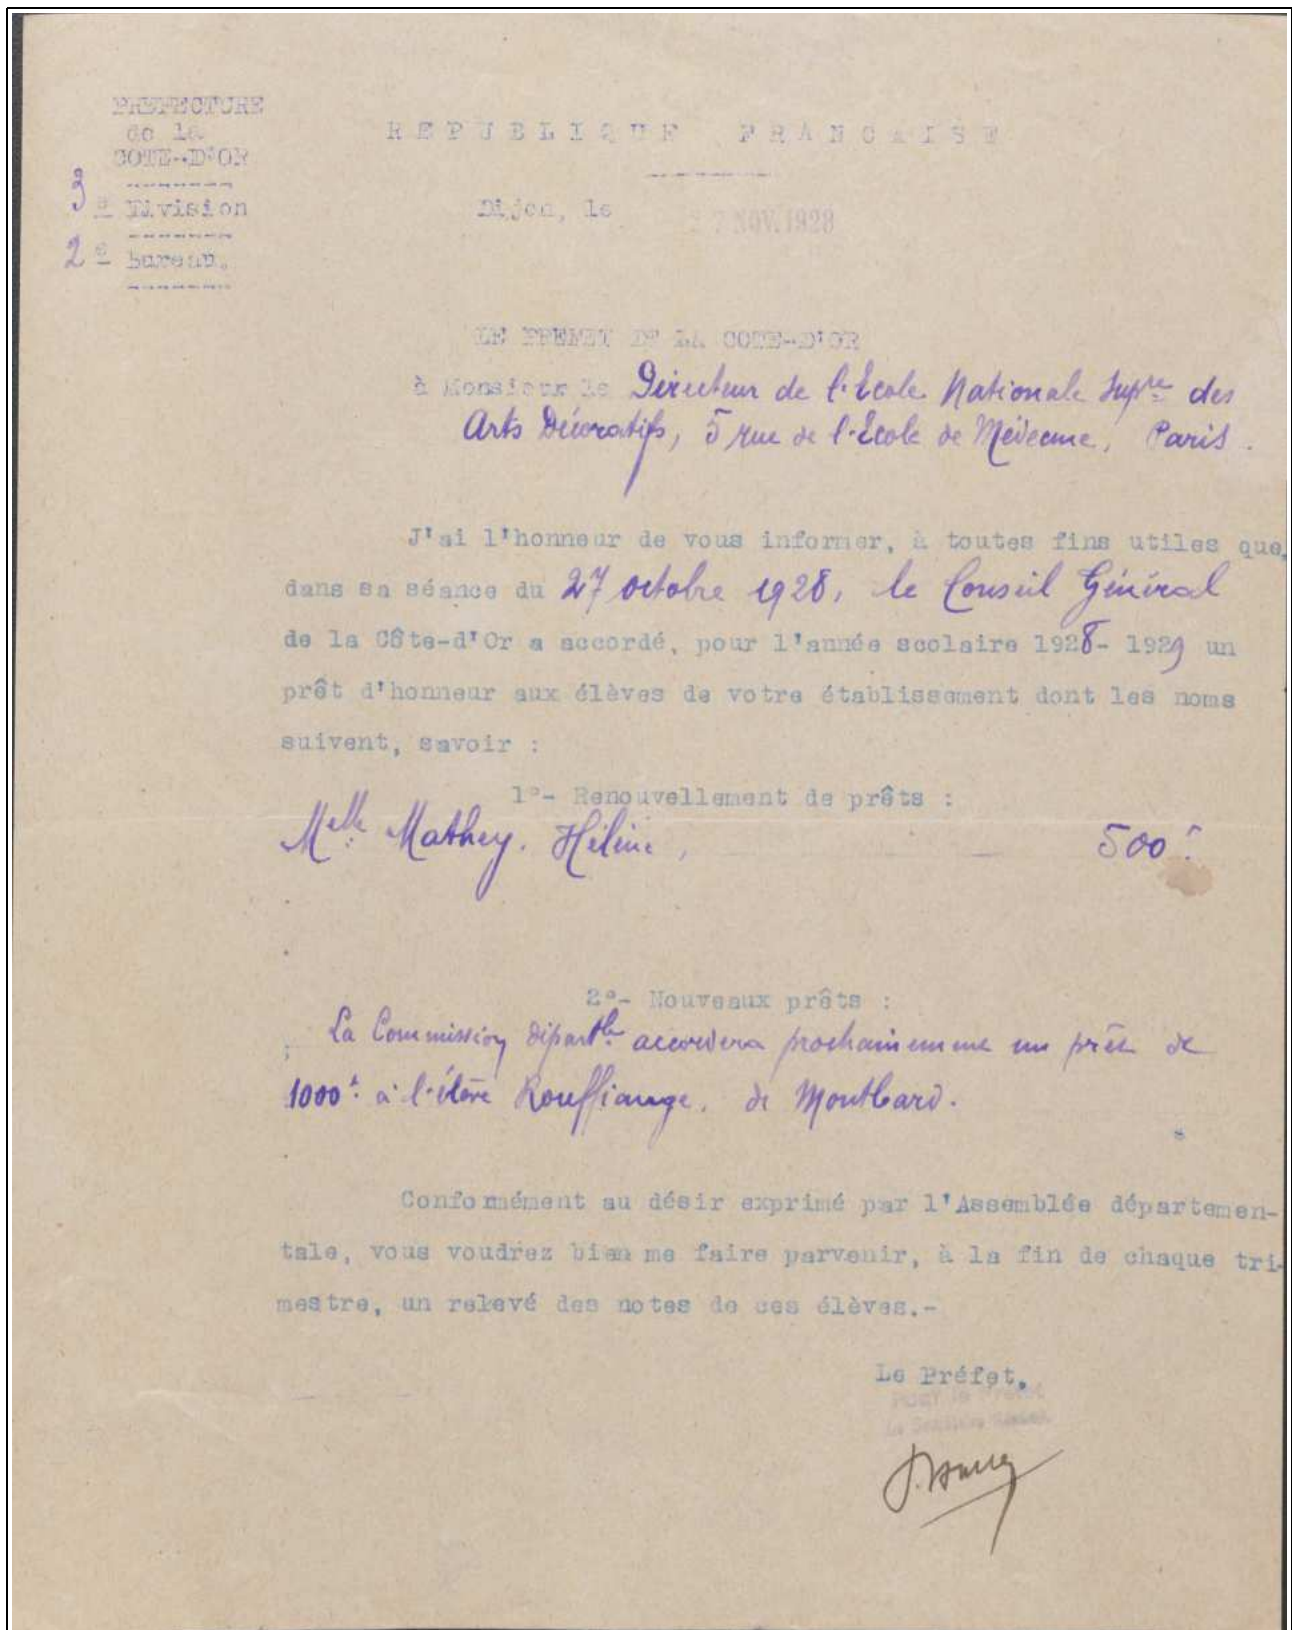 PREFECTURE
de la
COTE-D'OR
3e Division
2e Bureau.
REPUBLIQUE FRANCAISE
Dijon, le 7 NOV. 1928
LE PREFET DE LA COTE-D'OR
à Monsieur le Directeur de l'Ecole Nationale Supre des
Arts Décoratifs, 5 rue de l'Ecole de Médecine, Paris.
J'ai l'honneur de vous informer, à toutes fins utiles que,
dans sa séance du 27 octobre 1928, le Conseil Général
de la Côte-d'Or a accordé, pour l'année scolaire 1928- 1929 un
prêt d'honneur aux élèves de votre établissement dont les noms
suivent, savoir :
1°- Renouvellement de prêts :
Melle Mathey. Hélène, 500f
2°- Nouveaux prêts :
La Commission départle accordera prochainement un prêt de
1000f à l'élève Rouffiange, de Montbard.
Conformément au désir exprimé par l'Assemblée départemen-
tale, vous voudrez bien me faire parvenir, à la fin de chaque tri-
mestre, un relevé des notes de ces élèves.-
Le Préfet,